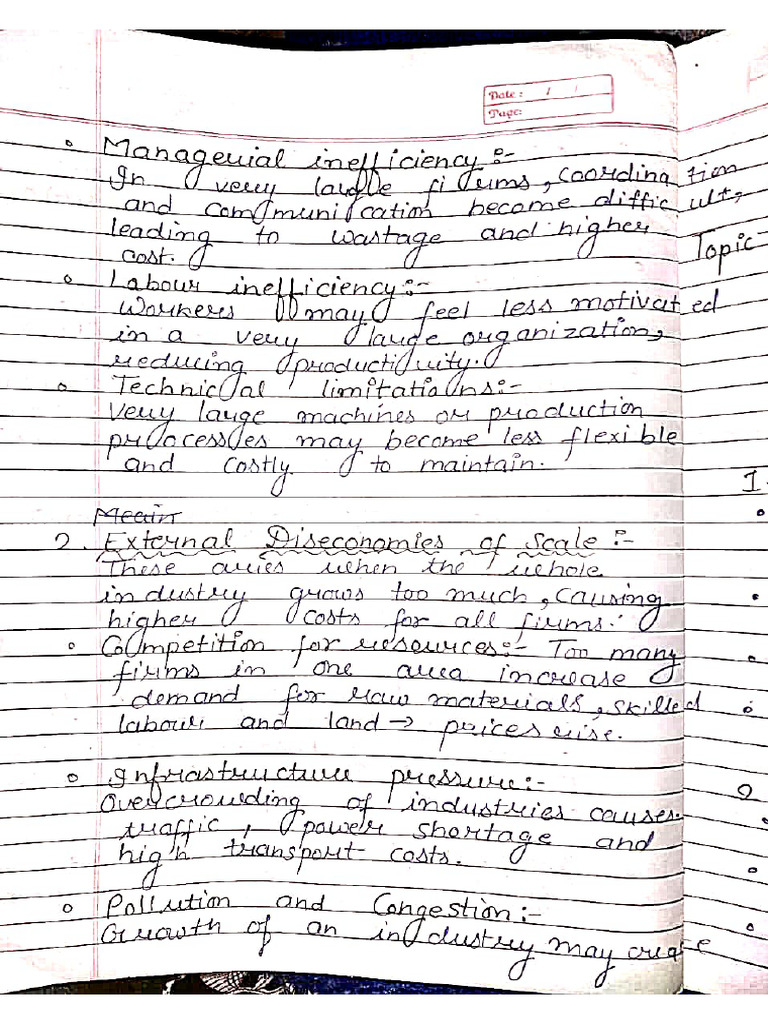 Date: / /
Page:
• Managerial inefficiency :-
In very large firms, coordination
and communication become difficult,
leading to wastage and higher
cost.
Topic
• Labour inefficiency :-
Workers may feel less motivated
in a very large organization,
reducing productivity.
• Technical limitations :-
Very large machines or production
processes may become less flexible
and costly to maintain.
1
Meain
2. External Diseconomies of Scale :-
These aries when the whole
industry grows too much, causing
higher costs for all firms.
• Competition for resources :- Too many
firms in one area increase
demand for raw materials, skilled
labour and land → prices rise.
• Infrastructure pressure :-
Overcrowding of industries causes
traffic, power shortage and
high transport costs.
2
• Pollution and Congestion :-
Growth of an industry may create